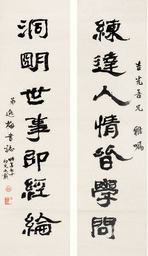 練達人情皆學問
吾兄 雅囑
洞明世事即經綸
弟逸梅書